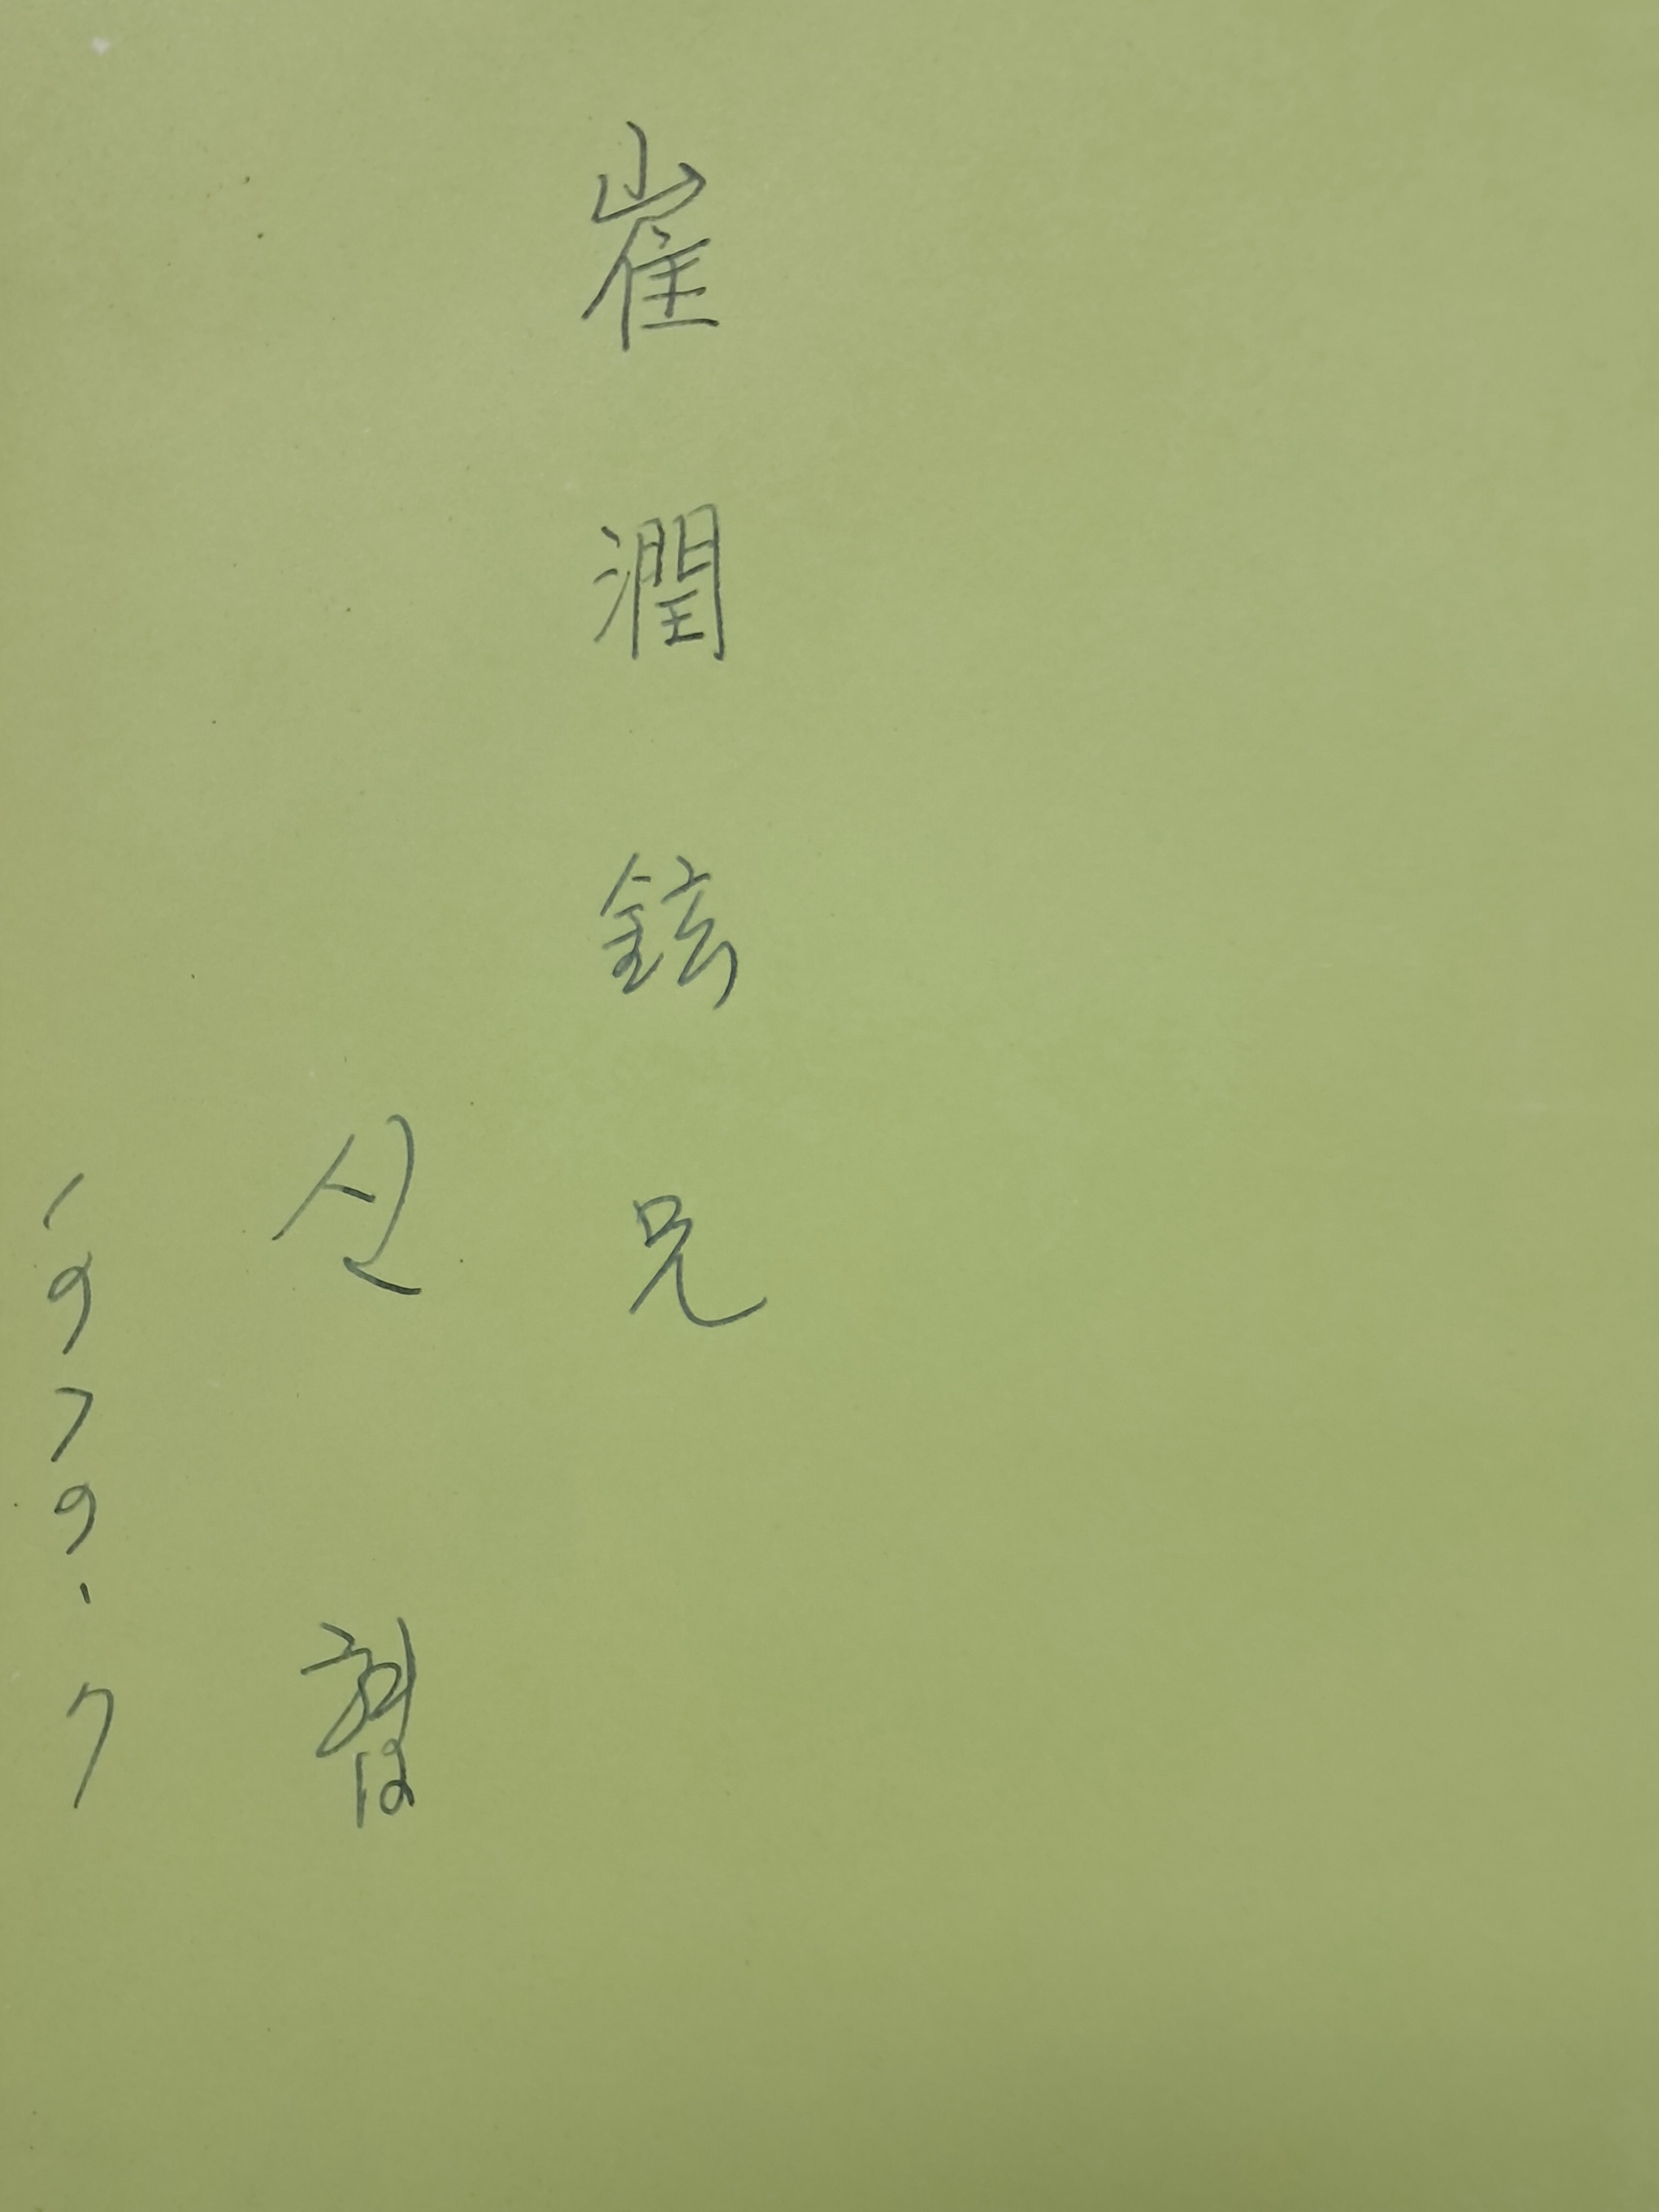 崔潤鉉兄
신협
1979.7